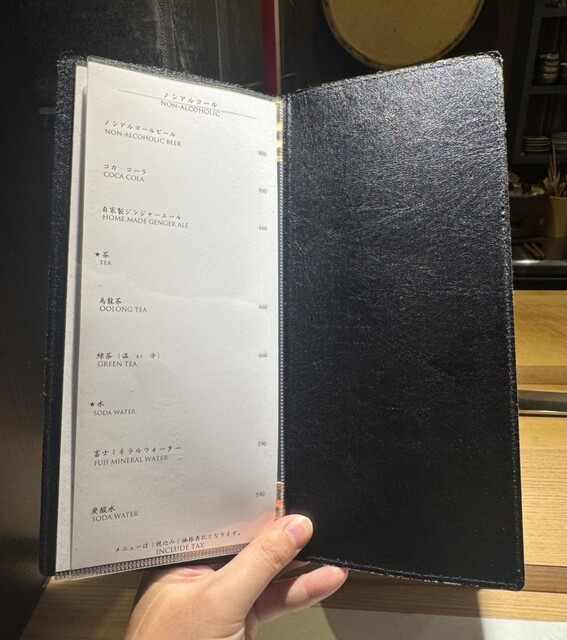 ノンアルコール
NON-ALCOHOLIC
ノンアルコールビール
NON-ALCOHOLIC BEER
コカ・コーラ
COCA COLA
自家製ジンジャーエール
HOME MADE GENGER ALE
660
★茶
TEA
烏龍茶
OOLONG TEA
660
緑茶（温 or 冷）
GREEN TEA
660
★水
SODA WATER
富士ミネラルウォーター
FUJI MINERAL WATER
590
炭酸水
SODA WATER
590
メニューは「税込み」価格表示になります。
INCLUDE TAX